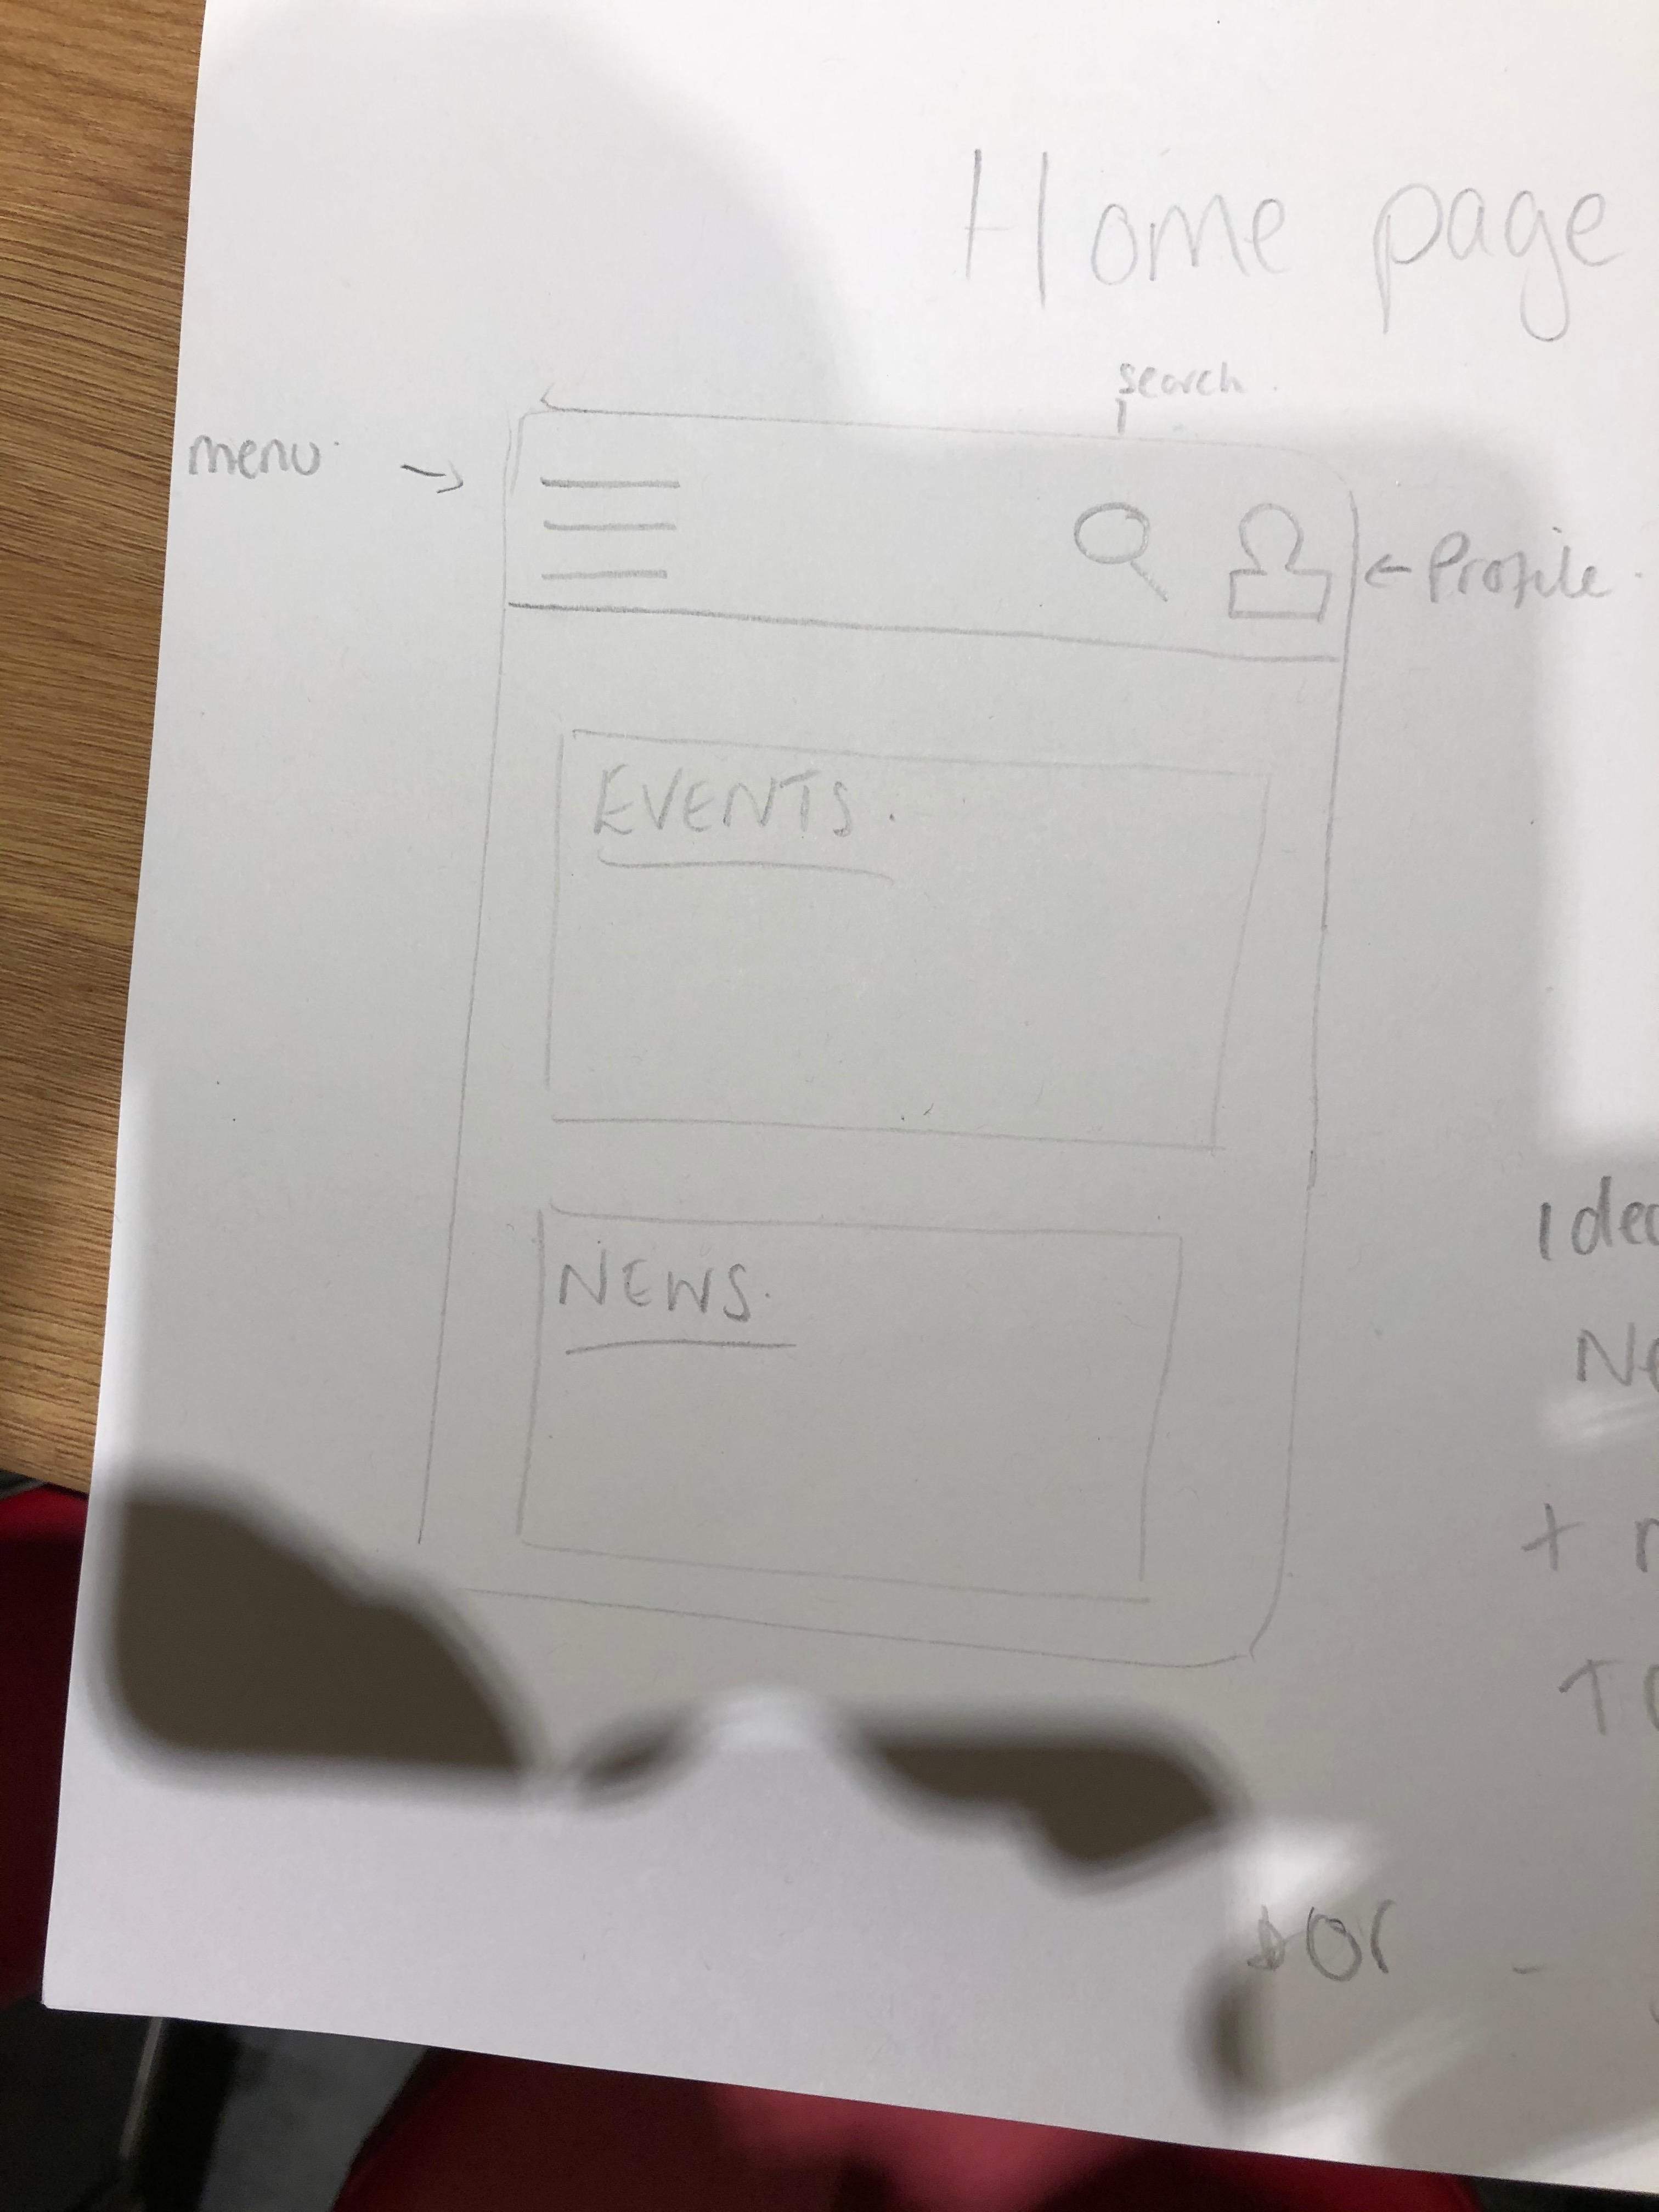 Home page
search.
menu
Profile.
EVENTS.
NEWS.
or